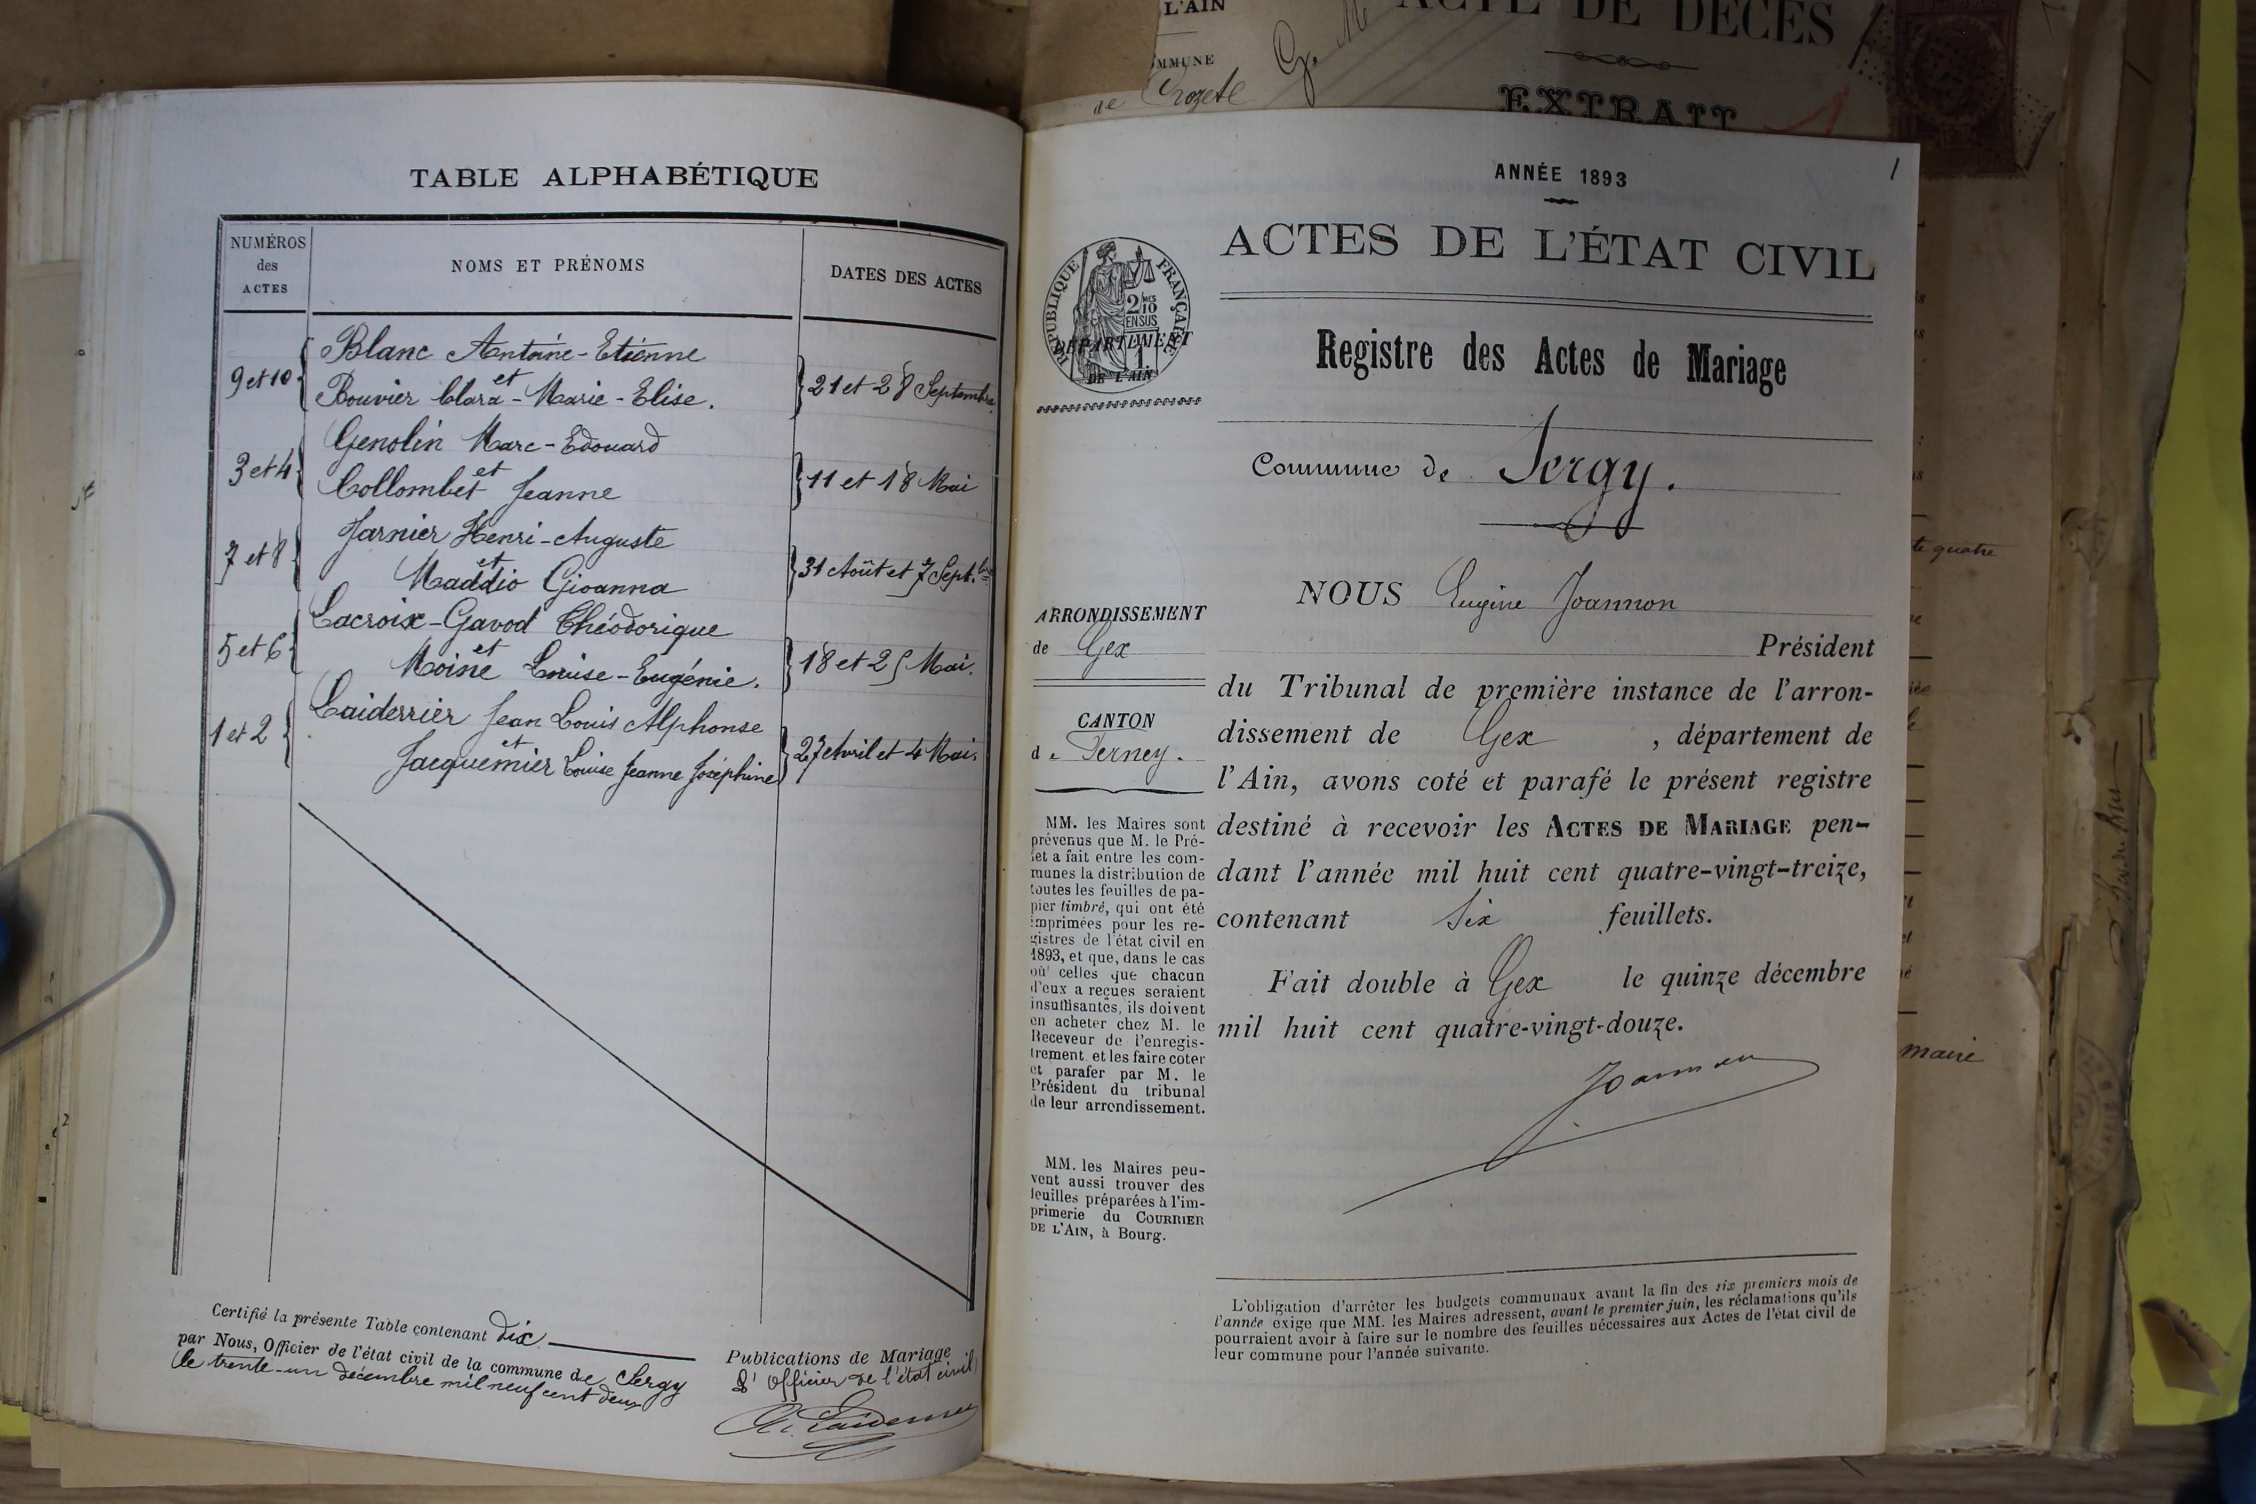 TABLE ALPHABÉTIQUE
NUMÉROS
des
ACTES
NOMS ET PRÉNOMS
DATES DES ACTES
9 et 10
Blanc Antoine-Etienne
et
Bouvier Clara-Marie-Elise.
21 et 28 Septembre
3 et 4
Genolin Marc-Edouard
et
Collombet Jeanne
11 et 18 Mai
7 et 8
Jarnier Henri-Auguste
et
Maddio Gioanna
31 Août et 7 Sept.bre
5 et 6
Lacroix-Gavod Théodorique
et
Moine Louise-Eugénie.
18 et 25 Mai.
1 et 2
Laiderrier Jean Louis Alphonse
et
Jacquemier Louise Jeanne Joséphine
27 Avril et 4 Mai.
Certifié la présente Table contenant dix
par Nous, Officier de l'état civil de la commune de Sergy
le trente-un décembre mil neuf cent deux
Publications de Mariage
L'officier de l'état civil
L'AIN
COMMUNE
de Crozete
ACTE DE DÉCÈS
EXTRAIT
ANNÉE 1893
1
ACTES DE L'ÉTAT CIVIL
RÉPUBLIQUE FRANÇAISE
2 MES
10
EN SUS
DÉPARTEMENT
DE L'AIN
Registre des Actes de Mariage
Commune de Sergy.
NOUS Eugène Joannon
Président
du Tribunal de première instance de l'arron-
dissement de Gex, département de
l'Ain, avons coté et parafé le présent registre
destiné à recevoir les ACTES DE MARIAGE pen-
dant l'année mil huit cent quatre-vingt-treize,
contenant six feuillets.
Fait double à Gex le quinze décembre
mil huit cent quatre-vingt-douze.
Joannon
ARRONDISSEMENT
de Gex
CANTON
de Ferney.
MM. les Maires sont
prévenus que M. le Pré-
fet a fait entre les com-
munes la distribution de
toutes les feuilles de pa-
pier timbré, qui ont été
imprimées pour les re-
gistres de l'état civil en
1893, et que, dans le cas
où celles que chacun
d'eux a reçues seraient
insuffisantes, ils doivent
en acheter chez M. le
Receveur de l'enregis-
trement et les faire coter
et parafer par M. le
Président du tribunal
de leur arrondissement.
MM. les Maires peu-
vent aussi trouver des
feuilles préparées à l'im-
primerie du COURRIER
DE L'AIN, à Bourg.
L'obligation d'arrêter les budgets communaux avant la fin des six premiers mois de
l'année exige que MM. les Maires adressent, avant le premier juin, les réclamations qu'ils
pourraient avoir à faire sur le nombre des feuilles nécessaires aux Actes de l'état civil de
leur commune pour l'année suivante.
te quatre
maire